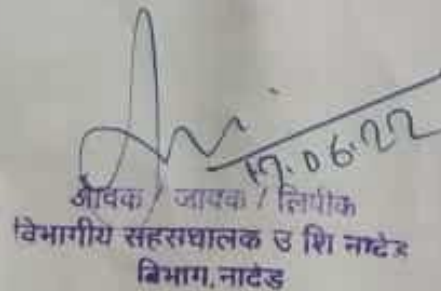 17.06.22
आवक / जावक / लिपीक
विभागीय सहसंचालक उ शि नांदेड
विभाग, नांदेड